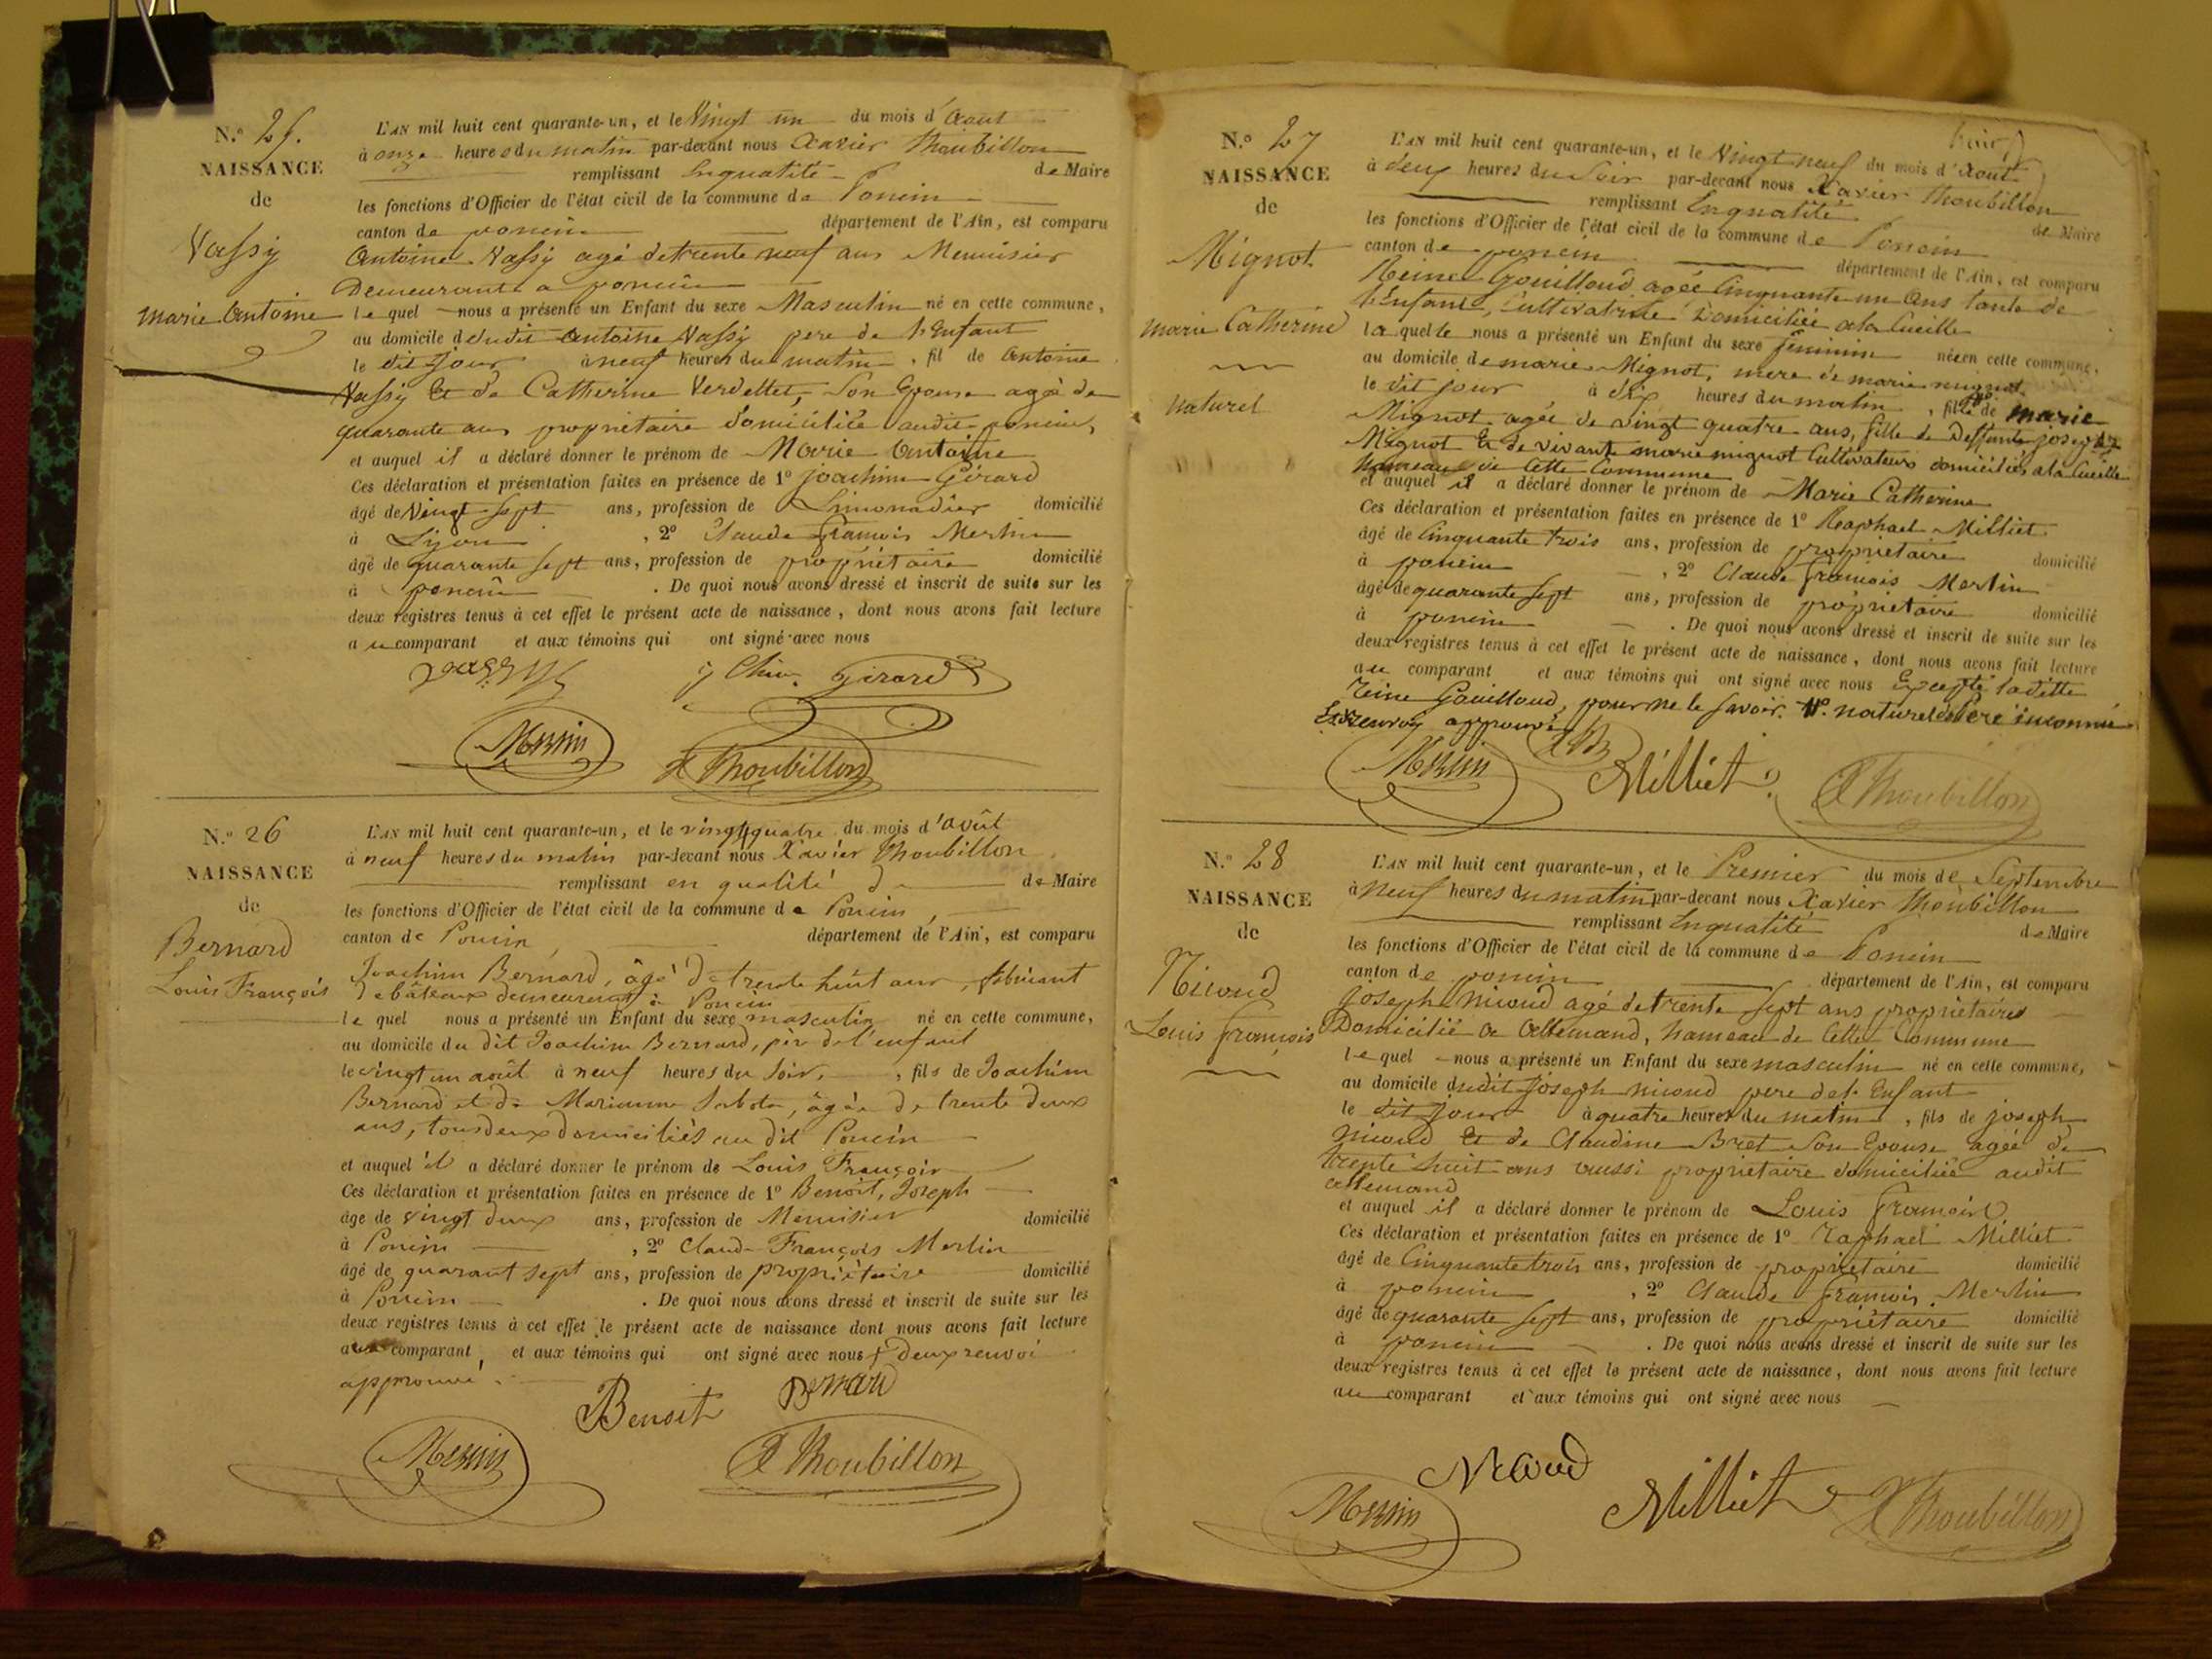 N.o 25.
NAISSANCE
de
Vassy
marie Antoine
L'AN mil huit cent quarante-un, et le Vingt un du mois d'Aout
à onze heures du matin par-devant nous Xavier Thoubillon
remplissant Enqualité de Maire
les fonctions d'Officier de l'état civil de la commune de Poncin
canton de poncin département de l'Ain, est comparu
Antoine Vassy agé de trente neuf ans Menuisier
Demeurant a poncin
le quel nous a présenté un Enfant du sexe Masculin né en cette commune,
au domicile dudit Antoine Vassy pere de l'Enfant
le dit jour à neuf heures du matin, fil de Antoine
Vassy Et de Catherine Verdellet, Son Epouse agée de
quarante ans propriétaire domiciliée audit poncin,
et auquel il a déclaré donner le prénom de Marie Antoine
Ces déclaration et présentation faites en présence de 1o joachim Gérard
âgé de Vingt Sept ans, profession de Limonadier domicilié
à Lyon, 2o Claude François Merlin
âgé de quarante Sept ans, profession de propriétaire domicilié
à poncin. De quoi nous avons dressé et inscrit de suite sur les
deux registres tenus à cet effet le présent acte de naissance, dont nous avons fait lecture
au comparant et aux témoins qui ont signé avec nous
Vassy
Girard
Merlin
X Thoubillon
N.o 26
NAISSANCE
de
Bernard
Louis François
L'AN mil huit cent quarante-un, et le vingt quatre du mois d'août
à neuf heures du matin par-devant nous Xavier Thoubillon
remplissant en qualité de Maire
les fonctions d'Officier de l'état civil de la commune de Poncin,
canton de Poncin, département de l'Ain, est comparu
Joachim Bernard, âgé de trente huit ans, fabricant
de bâteaux demeurant à Poncin
le quel nous a présenté un Enfant du sexe masculin né en cette commune,
au domicile du dit Joachim Bernard, père de l'enfant
le vingt un août à neuf heures du soir, fils de Joachim
Bernard et de Marianne Sabot, âgée de trente deux
ans, tous deux domiciliés au dit Poncin
et auquel il a déclaré donner le prénom de Louis François
Ces déclaration et présentation faites en présence de 1o Benoit, Joseph
âge de vingt deux ans, profession de Menuisier domicilié
à Poncin, 2o Claude François Merlin
âgé de quarant sept ans, profession de propriétaire domicilié
à Poncin. De quoi nous avons dressé et inscrit de suite sur les
deux registres tenus à cet effet le présent acte de naissance dont nous avons fait lecture
comparant, et aux témoins qui ont signé avec nous deux renvoi
approuvé.
Benoit Bernard
Merlin X Thoubillon
N.o 27
NAISSANCE
de
Mignot
marie Catherine
naturel
L'AN mil huit cent quarante-un, et le Vingt neuf du mois d'Aout
à deux heures du Soir par-devant nous Xavier Thoubillon
remplissant Enqualité de Maire
les fonctions d'Officier de l'état civil de la commune de Poncin
canton de poncin département de l'Ain, est comparu
Reine Gouilloud agée Cinquante un Ans tante de
l'Enfant, Cultivatrice Domiciliée ala Cueille
laquelle nous a présenté un Enfant du sexe féminin née en cette commune,
au domicile de marie Mignot, mere de marie mignot
le dit jour à dix heures du matin, fille de marie
Mignot agée de vingt quatre ans, fille de Deffunt joseph
Mignot Et de vivante marie mignot Cultivateurs domiciliés ala Cueille
hameau de Cette Commune
et auquel il a déclaré donner le prénom de Marie Catherine
Ces déclaration et présentation faites en présence de 1o Raphael Milliet
âgé de Cinquante trois ans, profession de propriétaire domicilié
à poncin, 2o Claude François Merlin
âgé de quarante Sept ans, profession de propriétaire domicilié
à poncin. De quoi nous avons dressé et inscrit de suite sur les
deux registres tenus à cet effet le présent acte de naissance, dont nous avons fait lecture
au comparant et aux témoins qui ont signé avec nous Excepté laditte
Reine Gouilloud, pour ne le Savoir. naturel de Père inconnu
renvoy approuvé
Merlin Milliet X Thoubillon
N.o 28
NAISSANCE
de
Nicoud
Louis françois
L'AN mil huit cent quarante-un, et le Premier du mois de Septembre
à Neuf heures du matin par-devant nous Xavier Thoubillon
remplissant Enqualité de Maire
les fonctions d'Officier de l'état civil de la commune de Poncin
canton de poncin département de l'Ain, est comparu
joseph Nicoud agé de trente Sept ans propriétaire
Domicilié a Allemand, hameau de Cette Commune
le quel nous a présenté un Enfant du sexe masculin né en cette commune,
au domicile dudit joseph nicoud pere de l'Enfant
le dit jour à quatre heures du matin, fils de joseph
Nicoud Et de Claudine Bret Son Epouse agée de
trente huit ans aussi propriétaire domiciliée audit
allemand
et auquel il a déclaré donner le prénom de Louis François
Ces déclaration et présentation faites en présence de 1o Raphael Milliet
âgé de Cinquante trois ans, profession de propriétaire domicilié
à poncin, 2o Claude François Merlin
âgé de quarante Sept ans, profession de propriétaire domicilié
à poncin. De quoi nous avons dressé et inscrit de suite sur les
deux registres tenus à cet effet le présent acte de naissance, dont nous avons fait lecture
au comparant et aux témoins qui ont signé avec nous
Nicoud
Merlin Milliet X Thoubillon